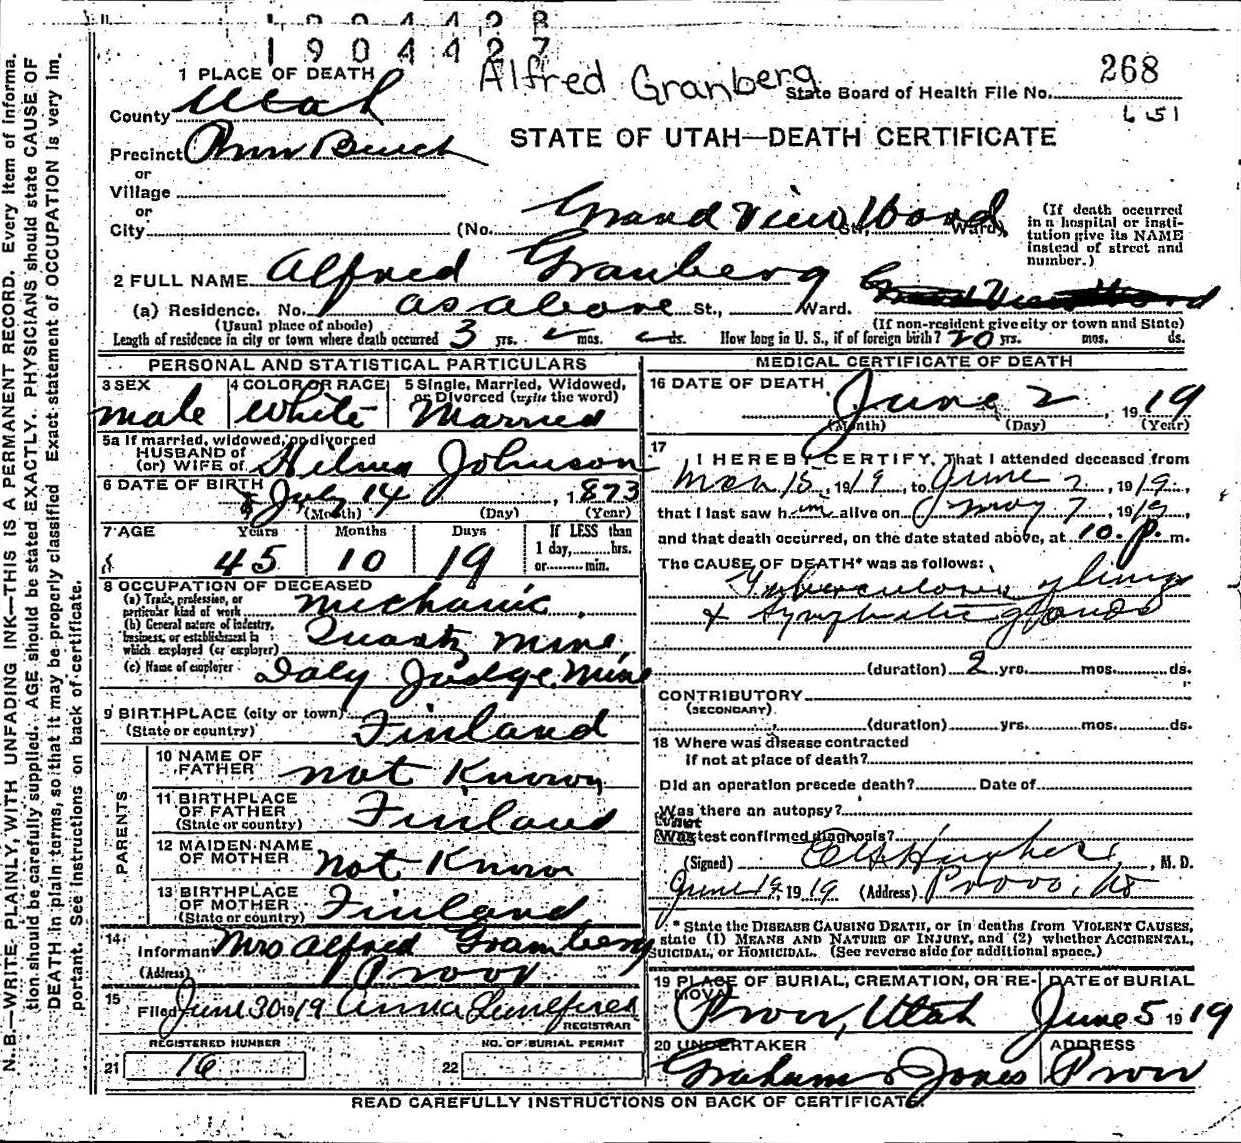 1904428
1904427
Alfred Granberg
268
1 PLACE OF DEATH
State Board of Health File No.
651
County Utah
STATE OF UTAH—DEATH CERTIFICATE
Precinct Provo Bench
or
Village
or
City (No. Grand View Ward St., Ward)
(If death occurred in a hospital or insti-
tution give its NAME
instead of street and
number.)
2 FULL NAME Alfred Granberg
(a) Residence. No. as above St., Ward. Grand View Ward
(Usual place of abode)
(If non-resident give city or town and State)
Length of residence in city or town where death occurred 3 yrs. mos. ds. How long in U. S., if of foreign birth? 20 yrs. mos. ds.
PERSONAL AND STATISTICAL PARTICULARS
3 SEX
male
4 COLOR OR RACE
White
5 Single, Married, Widowed,
or Divorced (write the word)
Married
5a If married, widowed, or divorced
HUSBAND of
(or) WIFE of Hilma Johnson
6 DATE OF BIRTH
July 14, 1873
(Month) (Day) (Year)
7 AGE Years Months Days If LESS than
1 day, hrs.
or min.
45 10 19
8 OCCUPATION OF DECEASED
(a) Trade, profession, or
particular kind of work mechanic
(b) General nature of industry,
business, or establishment in
which employed (or employer) Quartz Mine,
(c) Name of employer Daly Judge Mine
9 BIRTHPLACE (city or town)
(State or country) Finland
PARENTS
10 NAME OF
FATHER not Known
11 BIRTHPLACE
OF FATHER
(State or country) Finland
12 MAIDEN NAME
OF MOTHER not Known
13 BIRTHPLACE
OF MOTHER
(State or country) Finland
14
Informant Mrs Alfred Gramberg
(Address) Provo
15
Filed June 30 1919 Anna
REGISTRAR
REGISTERED NUMBER
21 16
NO. OF BURIAL PERMIT
22
MEDICAL CERTIFICATE OF DEATH
16 DATE OF DEATH
June 2, 1919
(Month) (Day) (Year)
17
I HEREBY CERTIFY, That I attended deceased from
Mch 15, 1919, to June 2, 1919,
that I last saw him alive on May 7, 1919,
and that death occurred, on the date stated above, at 10.P.m.
The CAUSE OF DEATH* was as follows:
Tuberculosis of lungs
& Lymphatic glands
(duration) 2 yrs. mos. ds.
CONTRIBUTORY
(SECONDARY)
(duration) yrs. mos. ds.
18 Where was disease contracted
if not at place of death?
Did an operation precede death? Date of
Was there an autopsy?
What
test confirmed diagnosis?
(Signed) Hughes, M. D.
June 19, 1919 (Address) Provo, Ut
* State the DISEASE CAUSING DEATH, or in deaths from VIOLENT CAUSES,
state (1) MEANS AND NATURE OF INJURY, and (2) whether ACCIDENTAL,
SUICIDAL, or HOMICIDAL. (See reverse side for additional space.)
19 PLACE OF BURIAL, CREMATION, OR RE-
MOVAL
Provo, Utah
DATE of BURIAL
June 5 1919
20 UNDERTAKER
Graham & Jones
ADDRESS
Provo
READ CAREFULLY INSTRUCTIONS ON BACK OF CERTIFICATE.
N. B.—WRITE PLAINLY, WITH UNFADING INK—THIS IS A PERMANENT RECORD. Every item of informa-
tion should be carefully supplied. AGE should be stated EXACTLY. PHYSICIANS should state CAUSE OF
DEATH in plain terms, so that it may be properly classified. Exact statement of OCCUPATION is very im-
portant. See instructions on back of certificate.